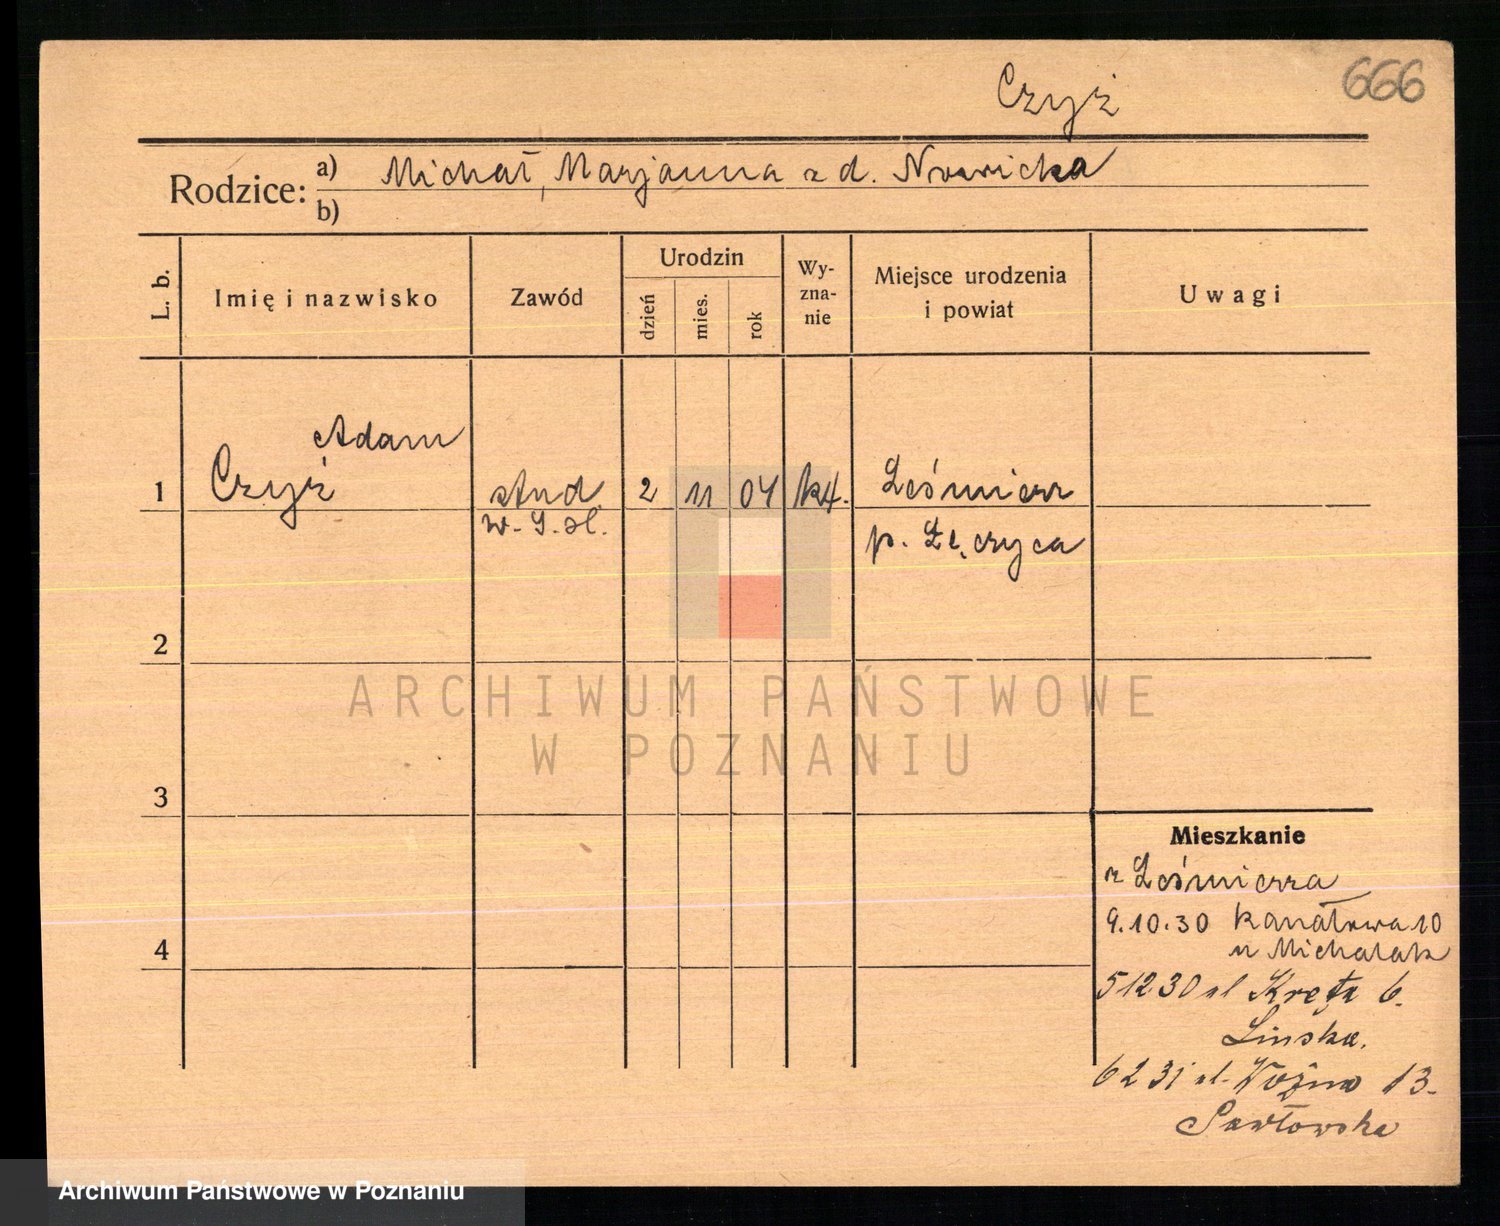 Czyż
666
Rodzice: a) Michał, Marjanna z d. Nowicka
b)
L. b.
Imię i nazwisko
Zawód
Urodzin
dzień
mies.
rok
Wy-
zna-
nie
Miejsce urodzenia
i powiat
Uwagi
Adam
1 Czyż stud 2 11 04 kt. Leśmierz
w. S. H. p. Łęczyca
2
3
4
Mieszkanie
z Leśmierza
9.10.30 Kanałowa 10
u Michalak
5 12 30 ul Kręta 6.
Linska.
6 2 31 ul. Woźna 13.
Pawłowska
ARCHIWUM PAŃSTWOWE
W POZNANIU
Archiwum Państwowe w Poznaniu